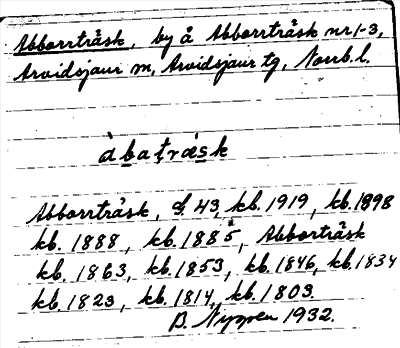 Abborrträsk, by å Abborrträsk nr 1-3,
Arvidsjaur sn, Arvidsjaur tg, Norrb. l.
àbatrǽsk
Abborrträsk, S. 43, kb. 1919, kb. 1898
kb. 1888, kb. 1885, Abbortråsk
kb. 1863, kb. 1853, kb. 1846, kb. 1834
kb. 1823, kb. 1814, kb. 1803.
B. Nyppen 1932.